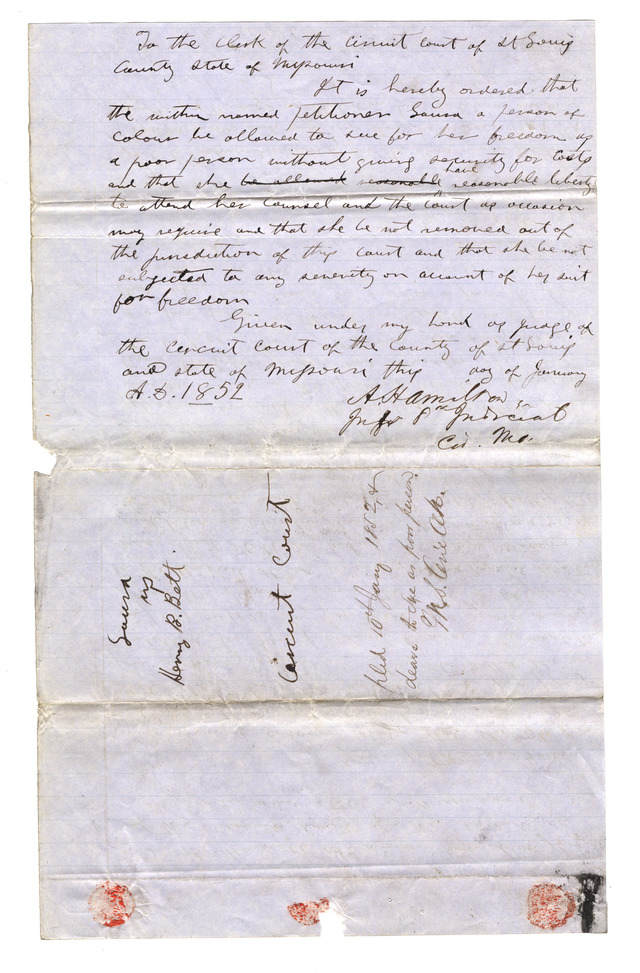 To the Clerk of the Circuit Court of St Louis
County State of Missouri
It is hereby ordered that
the within named petitioner Laura a person of
Colour be allowed to sue for her freedom as
a poor person without giving security for costs
and that she be allowed reasonable have reasonable liberty
to attend her Counsel and the Court as occasion
may require and that she be not removed out of
the jurisdiction of this court and that she be not
subjected to any severity on account of her suit
for freedom
Given under my hand as judge of
the circuit court of the County of St Louis
and state of Missouri this day of January
A.D. 1852
A. Hamilton
Judge 8th Judicial
Cir. Mo.
Laura
vs
Henry B. Belt.
Circuit Court
filed 10th Jany 1852, &
leave to sue as poor person.
Clk.